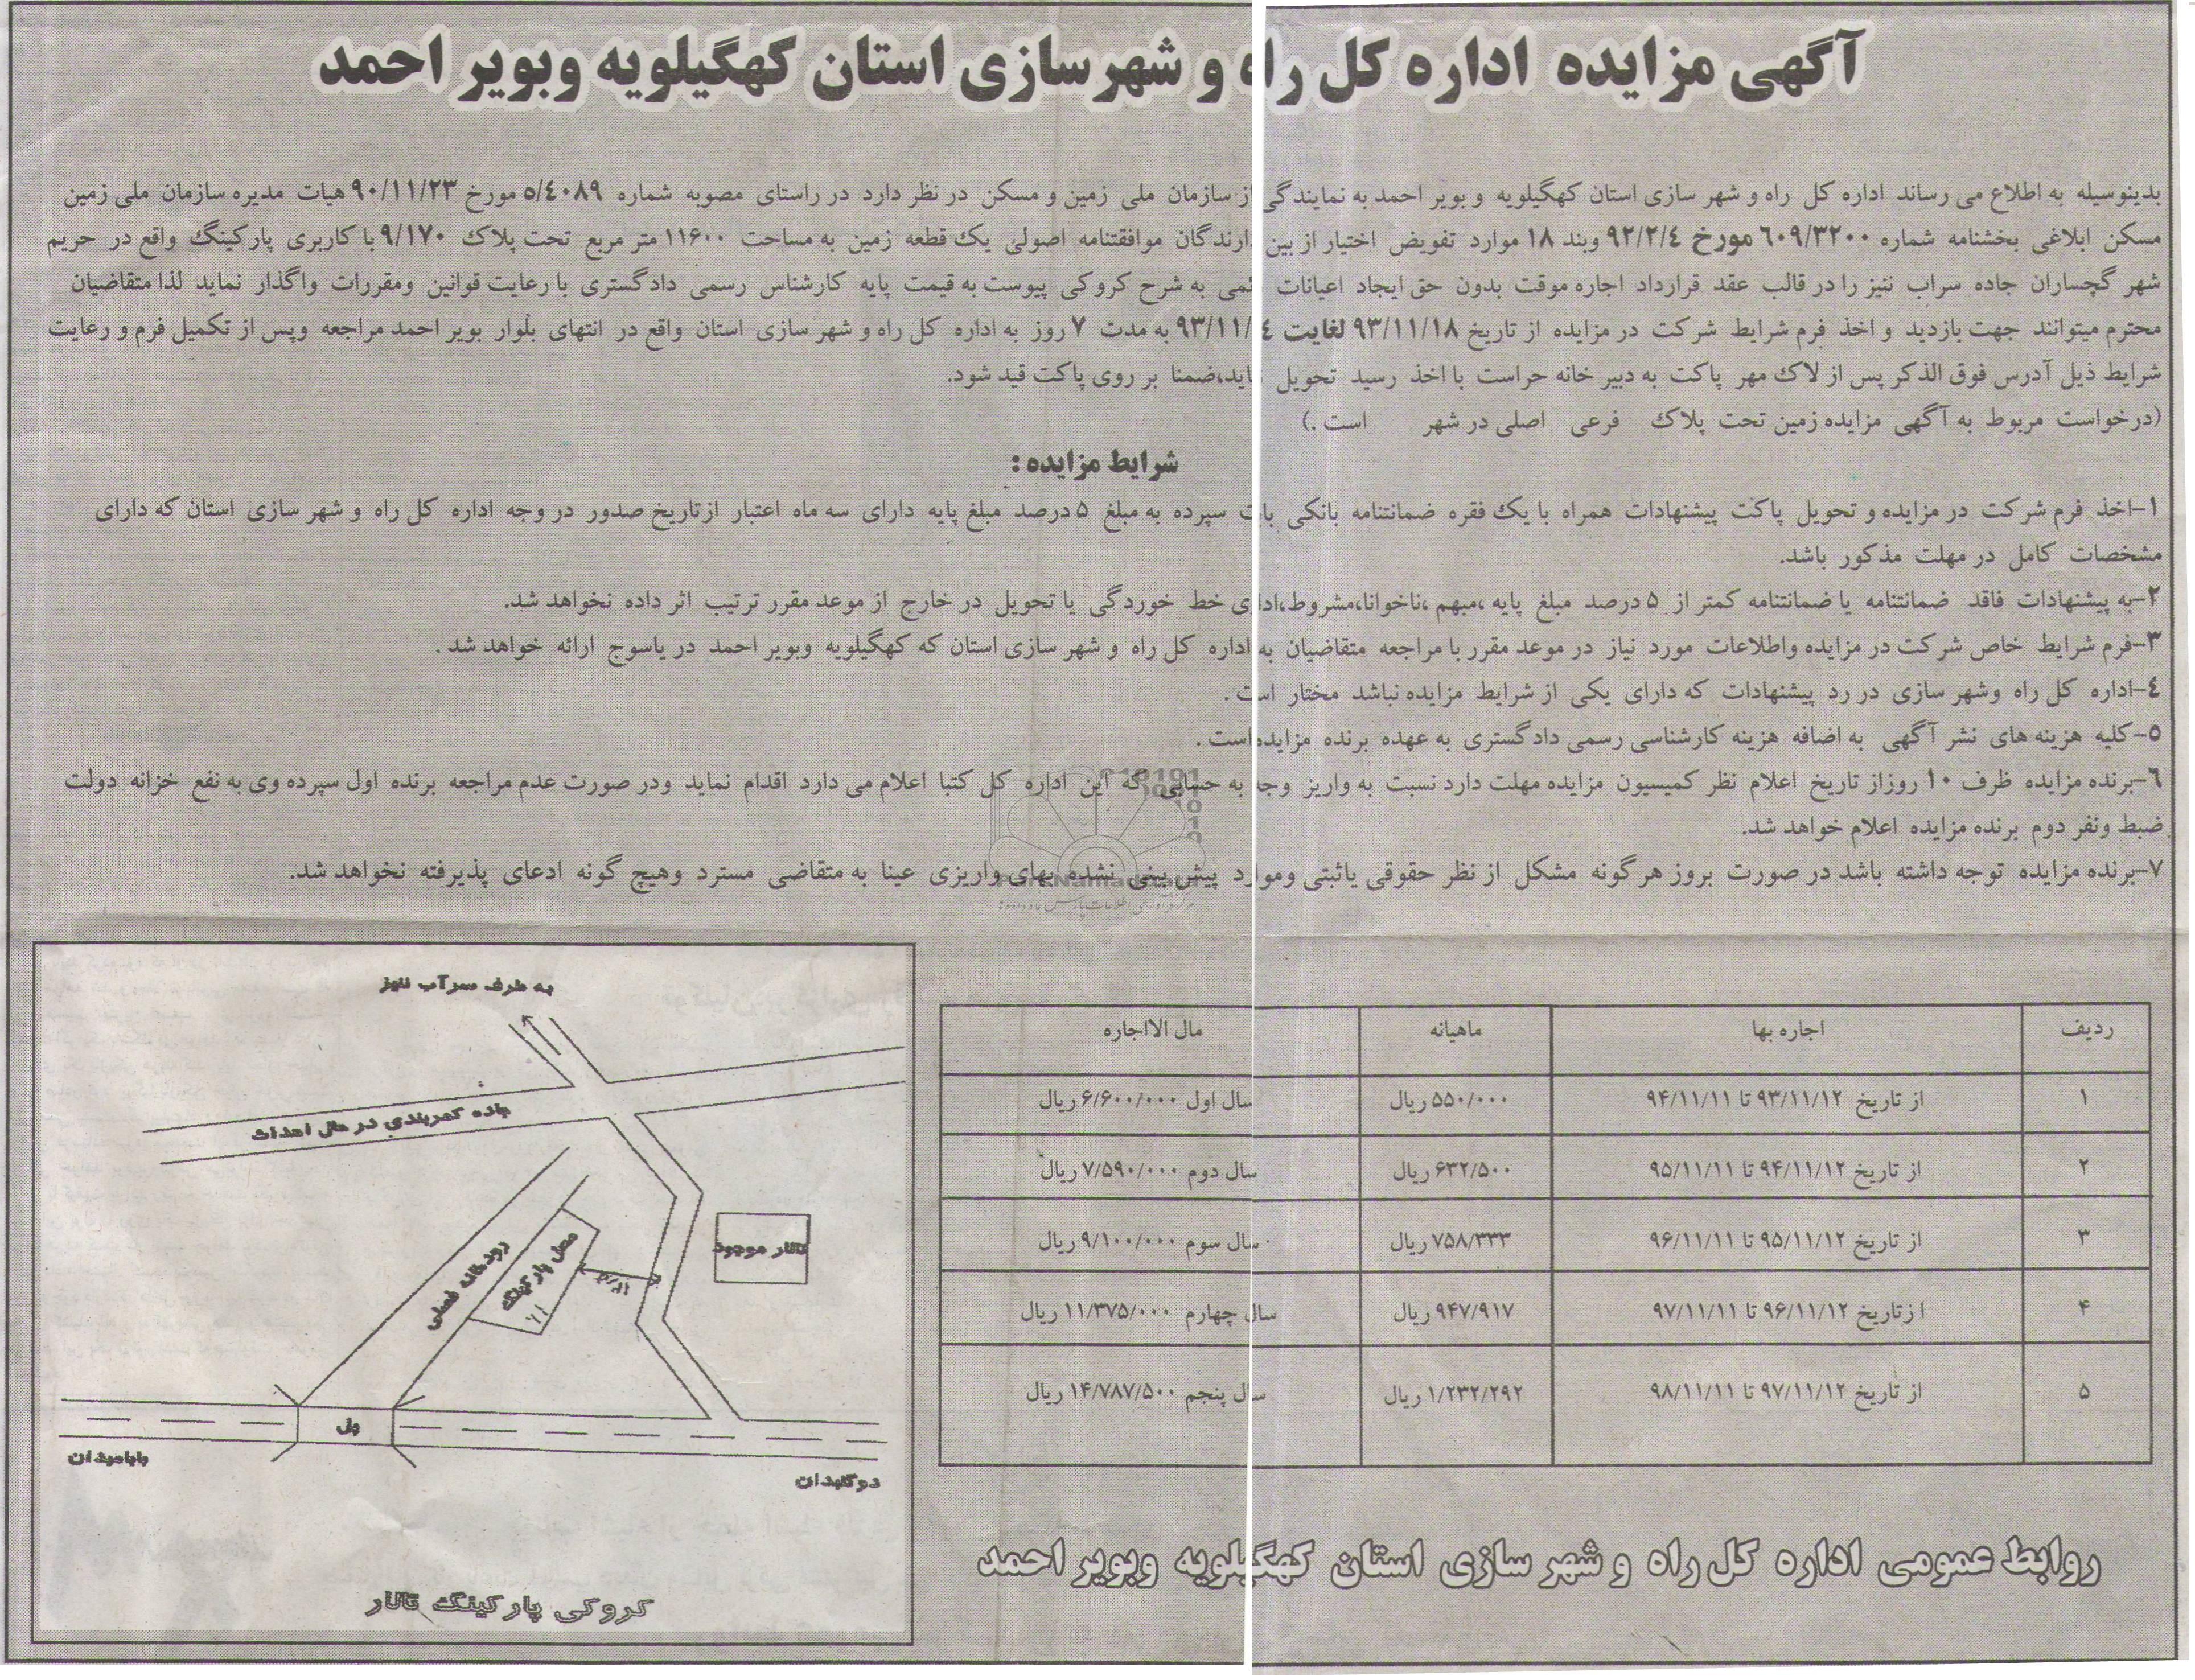 آگهی مزایده اداره کل راه و شهرسازی استان کهگیلویه وبویر احمد
بدینوسیله به اطلاع می رساند اداره کل راه و شهر سازی استان کهگیلویه و بویر احمد به نمایندگی از سازمان ملی زمین و مسکن در نظر دارد در راستای مصوبه شماره ۵/۴۰۸۹ مورخ ۹۰/۱۱/۲۳ هیات مدیره سازمان ملی زمین
مسکن ابلاغی بخشنامه شماره ۶۰۹/۳۲۰۰ مورخ ۹۲/۲/۴ وبند ۱۸ موارد تفویض اختیار از بین دارندگان موافقتنامه اصولی یک قطعه زمین به مساحت ۱۱۶۰۰ متر مربع تحت پلاک ۹/۱۷۰ با کاربری پارکینگ واقع در حریم
شهر گچساران جاده سراب ننیز را در قالب عقد قرارداد اجاره موقت بدون حق ایجاد اعیانات به شرح کروکی پیوست به قیمت پایه کارشناس رسمی دادگستری با رعایت قوانین ومقررات واگذار نماید لذا متقاضیان
محترم میتوانند جهت بازدید و اخذ فرم شرایط شرکت در مزایده از تاریخ ۹۳/۱۱/۱۸ لغایت ۹۳/۱۱/ به مدت ۷ روز به اداره کل راه و شهر سازی استان واقع در انتهای بلوار بویر احمد مراجعه وپس از تکمیل فرم و رعایت
شرایط ذیل آدرس فوق الذکر پس از لاک مهر پاکت به دبیر خانه حراست با اخذ رسید تحویل ضمنا بر روی پاکت قید شود.
(درخواست مربوط به آگهی مزایده زمین تحت پلاک فرعی اصلی در شهر است .)
شرایط مزایده :
۱-اخذ فرم شرکت در مزایده و تحویل پاکت پیشنهادات همراه با یک فقره ضمانتنامه بانکی بابت سپرده به مبلغ ۵ درصد مبلغ پایه دارای سه ماه اعتبار ازتاریخ صدور در وجه اداره کل راه و شهر سازی استان که دارای
مشخصات کامل در مهلت مذکور باشد.
۲-به پیشنهادات فاقد ضمانتنامه یا ضمانتنامه کمتر از ۵ درصد مبلغ پایه ،مبهم ،ناخوانا،مشروط، خط خوردگی یا تحویل در خارج از موعد مقرر ترتیب اثر داده نخواهد شد.
۳-فرم شرایط خاص شرکت در مزایده واطلاعات مورد نیاز در موعد مقرر با مراجعه متقاضیان به اداره کل راه و شهر سازی استان که کهگیلویه وبویر احمد در یاسوج ارائه خواهد شد .
۴-اداره کل راه وشهر سازی در رد پیشنهادات که دارای یکی از شرایط مزایده نباشد مختار است .
۵-کلیه هزینه های نشر آگهی به اضافه هزینه کارشناسی رسمی دادگستری به عهده برنده مزایده است .
۶-برنده مزایده ظرف ۱۰ روزاز تاریخ اعلام نظر کمیسیون مزایده مهلت دارد نسبت به واریز وجه به حسابی که این اداره کل کتبا اعلام می دارد اقدام نماید ودر صورت عدم مراجعه برنده اول سپرده وی به نفع خزانه دولت
ضبط ونفر دوم برنده مزایده اعلام خواهد شد.
۷-برنده مزایده توجه داشته باشد در صورت بروز هرگونه مشکل از نظر حقوقی یاثبتی وموارد پیش بینی نشده بهای واریزی عینا به متقاضی مسترد وهیچ گونه ادعای پذیرفته نخواهد شد.
ردیف اجاره بها ماهیانه مال الااجاره
۱ از تاریخ ۹۳/۱۱/۱۲ تا ۹۴/۱۱/۱۱ ۵۵۰/۰۰۰ ریال سال اول ۶/۶۰۰/۰۰۰ ریال
۲ از تاریخ ۹۴/۱۱/۱۲ تا ۹۵/۱۱/۱۱ ۶۳۲/۵۰۰ ریال سال دوم ۷/۵۹۰/۰۰۰ ریال
۳ از تاریخ ۹۵/۱۱/۱۲ تا ۹۶/۱۱/۱۱ ۷۵۸/۳۳۳ ریال سال سوم ۹/۱۰۰/۰۰۰ ریال
۴ ازتاریخ ۹۶/۱۱/۱۲ تا ۹۷/۱۱/۱۱ ۹۴۷/۹۱۷ ریال سال چهارم ۱۱/۳۷۵/۰۰۰ ریال
۵ از تاریخ ۹۷/۱۱/۱۲ تا ۹۸/۱۱/۱۱ ۱/۲۳۲/۲۹۲ ریال سال پنجم ۱۴/۷۸۷/۵۰۰ ریال
روابط عمومی اداره کل راه و شهر سازی استان کهگیلویه وبویر احمد
به طرف سرآب ننیز
جاده کمربندی در حال احداث
رودخانه فصلی
محل پارکینگ
تالار موجود
پل
باباميدان
دوگنبدان
کروکی پارکینگ تالار